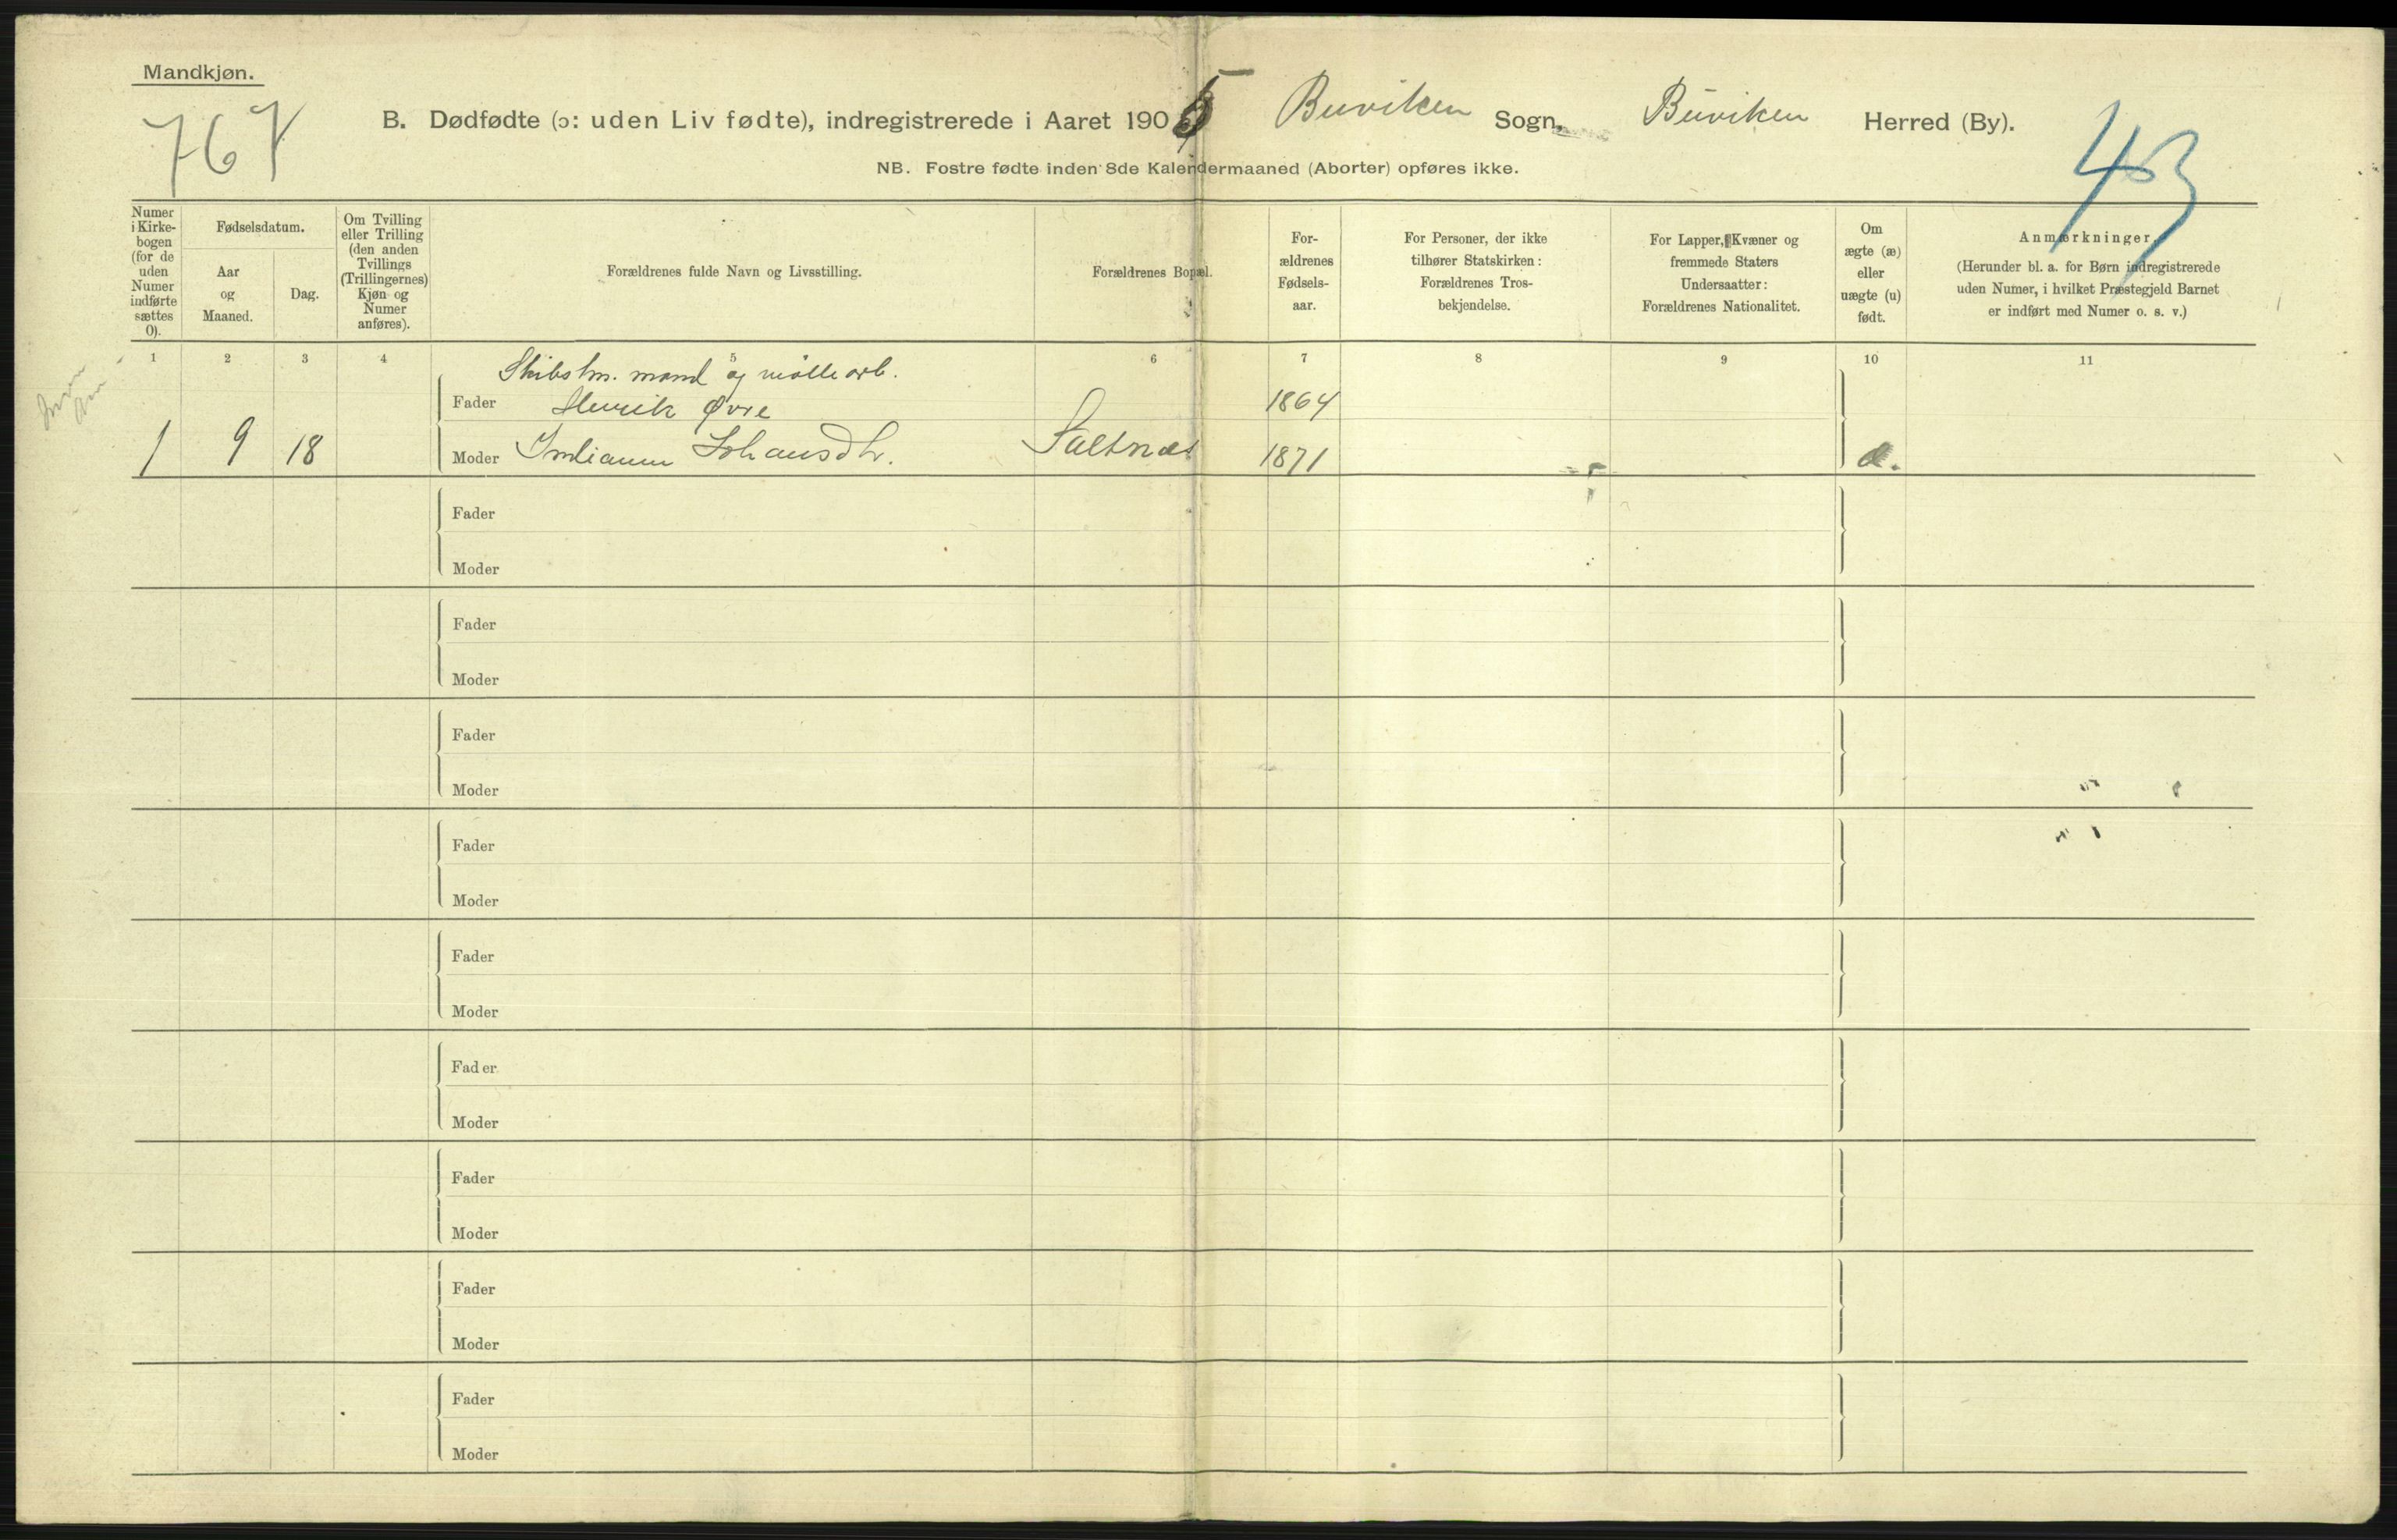 Mandkjøn.
767
B. Dødfødte (ɔ: uden Liv fødte), indregistrerede i Aaret 1905 Buviken Sogn, Buviken Herred (By).
43
NB. Fostre fødte inden 8de Kalendermaaned (Aborter) opføres ikke.
Numer i Kirkebogen (for de uden Numer indførte sættes 0).
Fødselsdatum.
Aar og Maaned.
Dag.
Om Tvilling eller Trilling (den anden Tvillings (Trillingernes) Kjøn og Numer anføres).
Forældrenes fulde Navn og Livsstilling.
Forældrenes Bopæl.
Forældrenes Fødselsaar.
For Personer, der ikke tilhører Statskirken: Forældrenes Trosbekjendelse.
For Lapper, Kvæner og fremmede Staters Undersaatter: Forældrenes Nationalitet.
Om ægte (æ) eller uægte (u) født.
Anmærkninger.
(Herunder bl. a. for Børn indregistrerede uden Numer, i hvilket Præstegjeld Barnet er indført med Numer o. s. v.)
1 2 3 4 5 6 7 8 9 10 11
mand og mølle arb.
Fader Henrik Øvre 1864
1 9 18 Moder Johansdtr. Saltnæs 1871 æ.
Fader
Moder
Fader
Moder
Fader
Moder
Fader
Moder
Fader
Moder
Fader
Moder
Fader
Moder
Fader
Moder
Fader
Moder